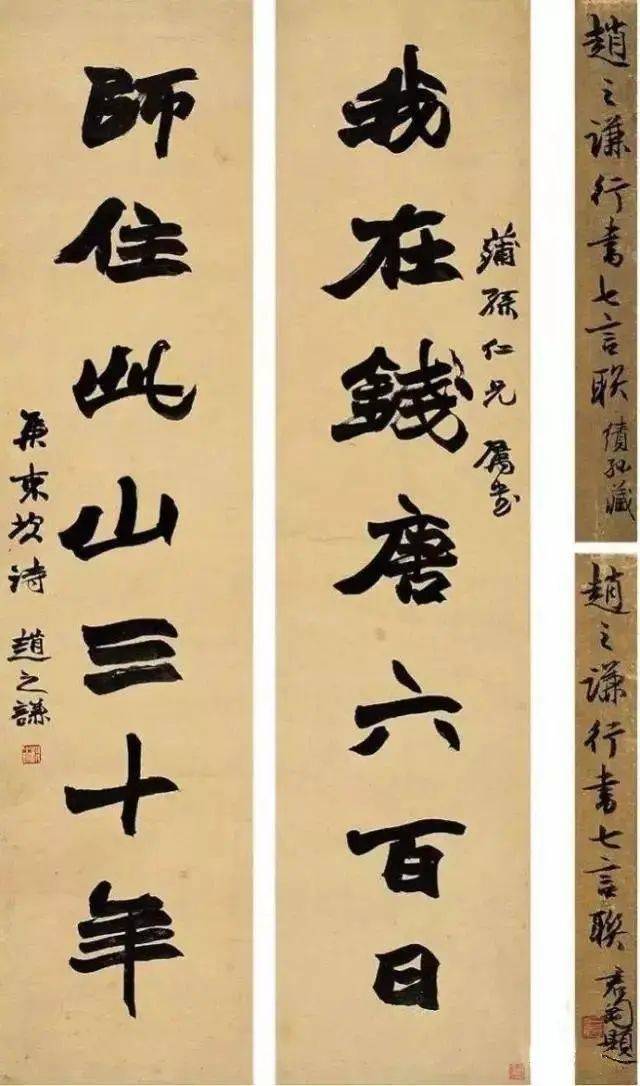 趙之谦行書七言联
藏
趙之谦行書七言联
題
蒲孫仁兄 属書
我在錢唐六百日
師住此山三十年
集東坡诗 趙之謙